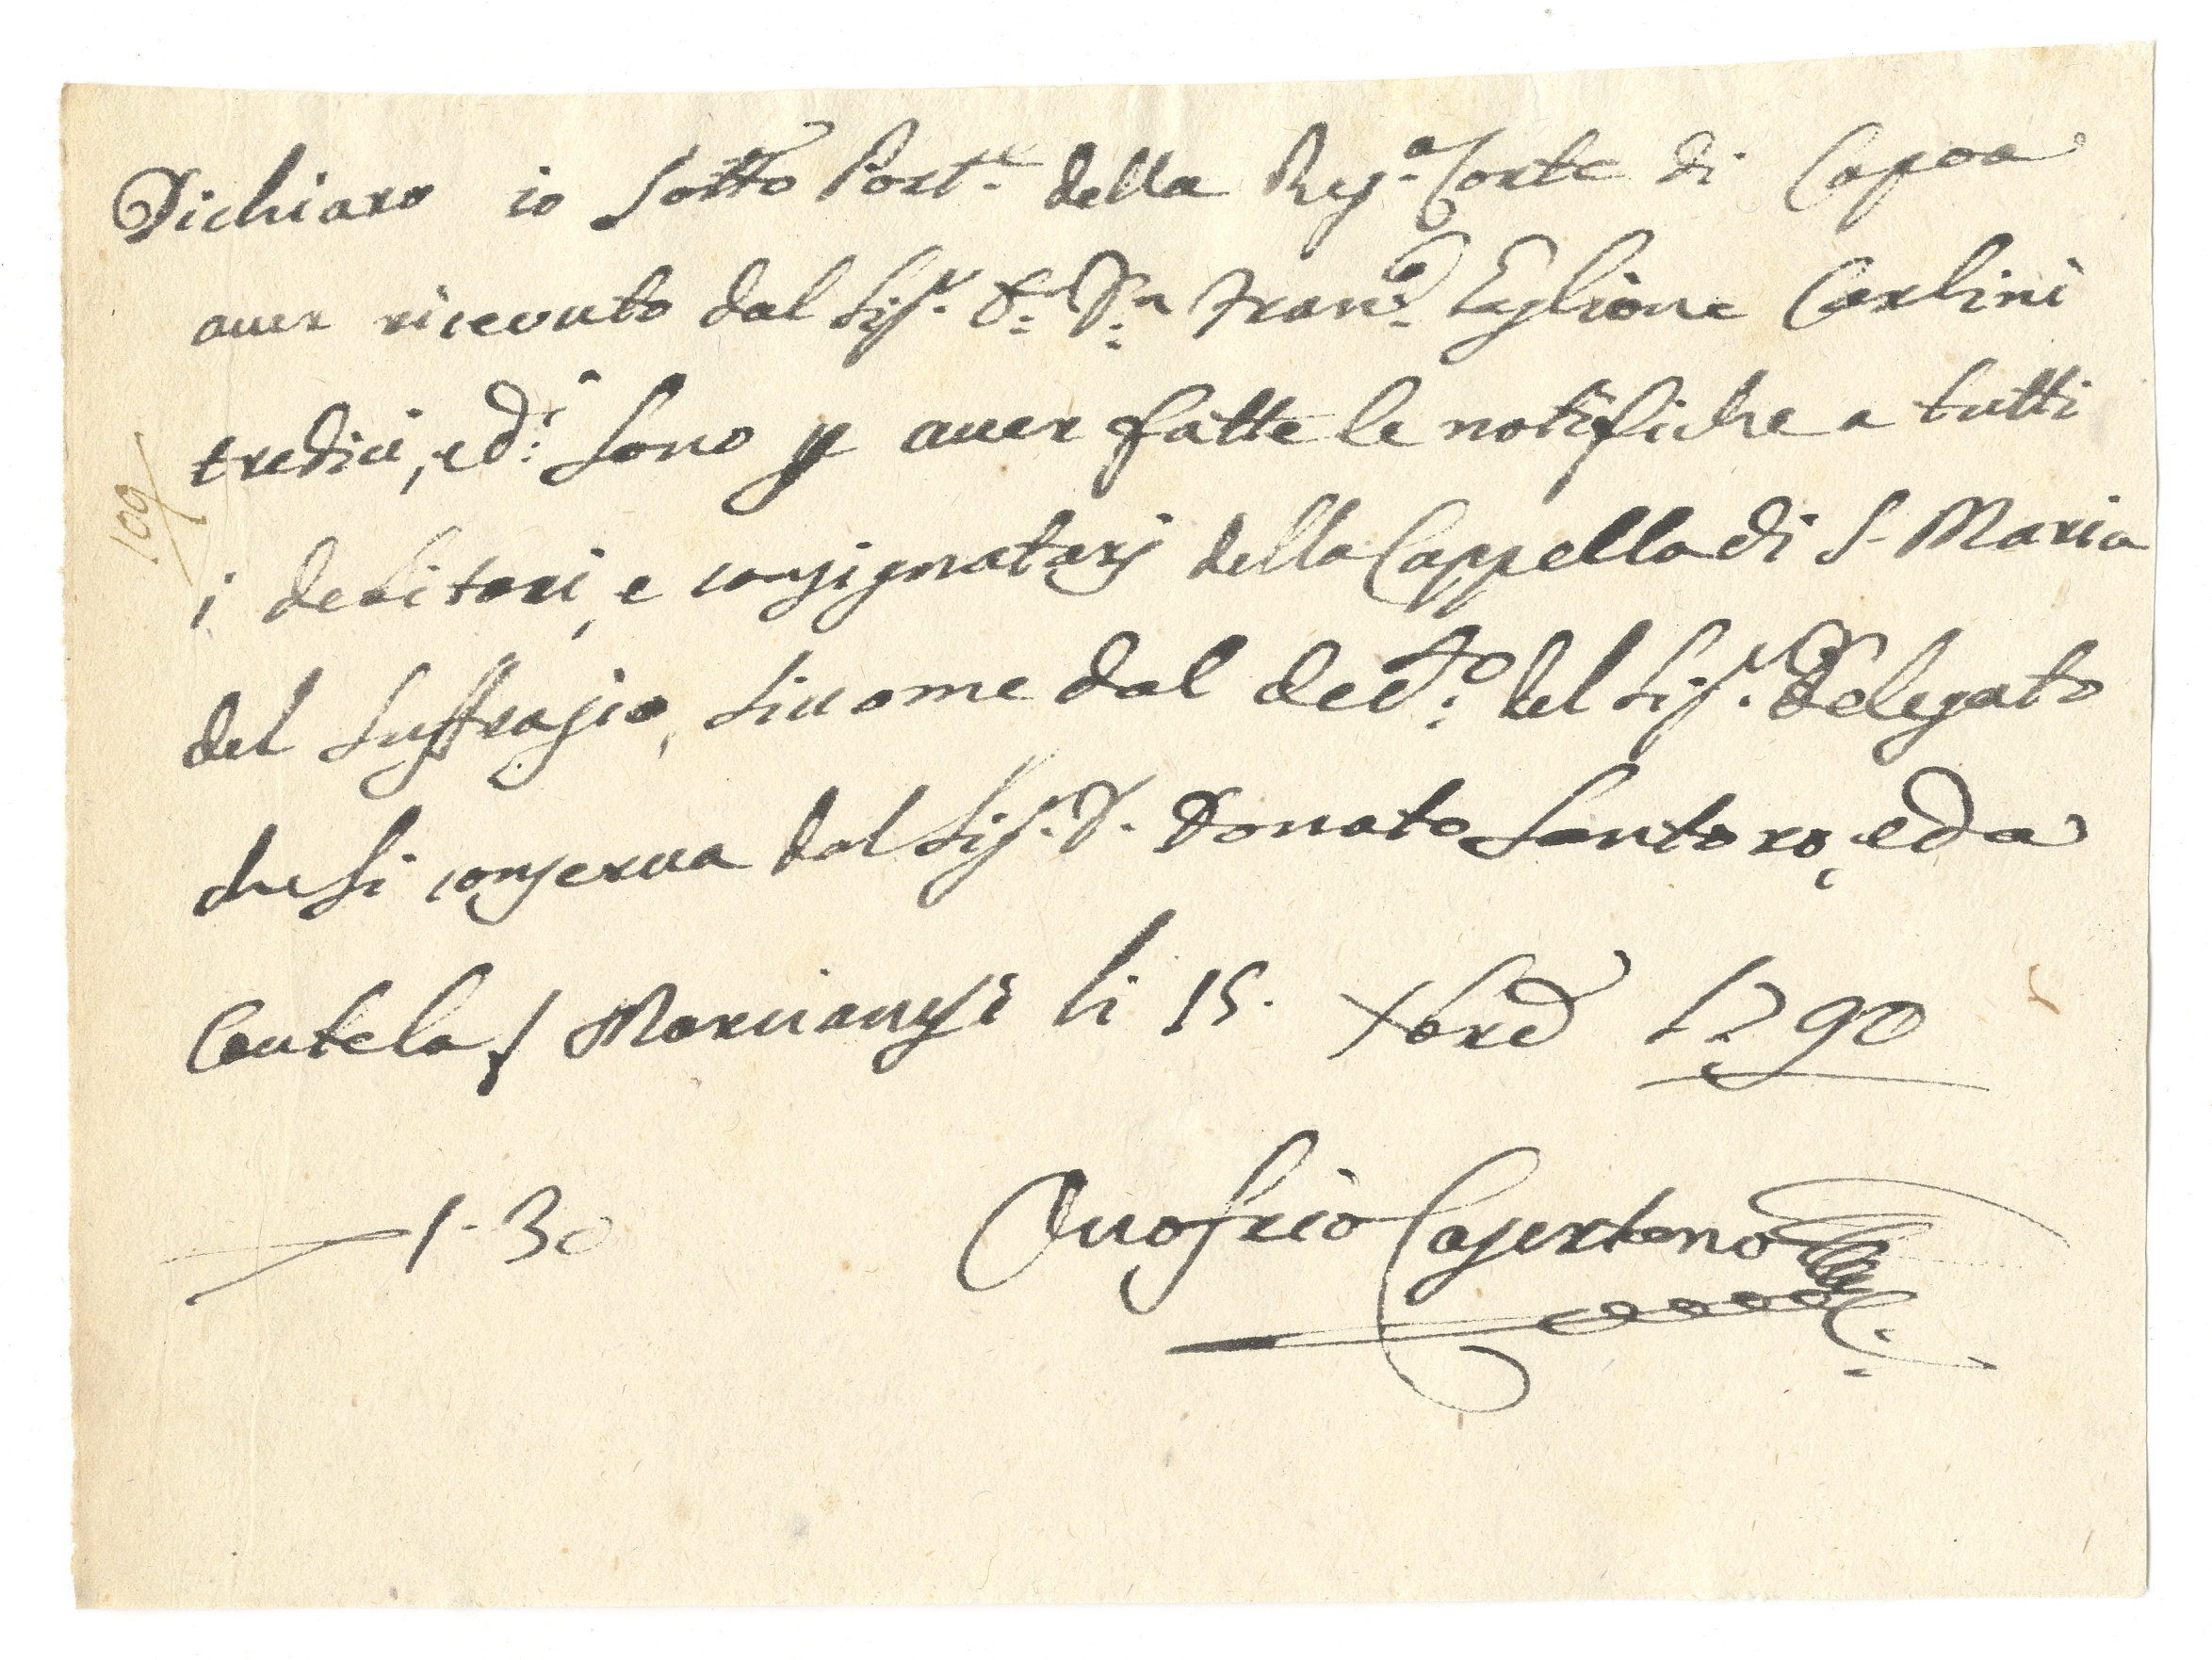 Dichiaro io Sotto Port.e della Reg.a Corte di Capoa
aver ricevuto dal Sig.r D.r D.n Fran.co Taglione Carlini
tredici, ed.i sono p aver fatte le notifiche a tutti
i debitori, e consignatarj della Cappella di S. Maria
del Suffragio, siccome dal dec.to del Sig.r Delegato
che si conserva dal Sig.r D. Donato Santoro, ed a
Cautela / Marcianisi li 15. Xbre 1790
1-30
Onofrio Casertano
109